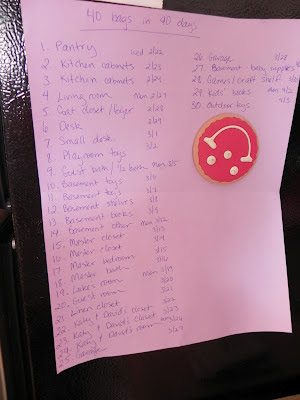 40 bags in 40 days
1. Pantry wed 2/22
2. Kitchen cabinets 2/23
3. Kitchen cabinets 2/24
4. Living room mon 2/27
5. Coat closet/foyer 2/28
6. Desk 2/29
7. Small desk 3/1
8. Playroom toys 3/2
9. Guest bath / 1/2 bath mon 3/5
10. Basement toys
11. Basement toys 3/7
12. Basement shelves 3/8
13. Basement books
14. Basement other mon 3/12
15. Master closet
16. Master closet 3/14
17. Master bedroom 3/15
18. Master bath
19. Luke's room mon 3/19
20. Guest room 3/20
21. Linen closet
22. Katy & David's closet
23. Katy & David's closet
24. Katy & David's room
25. Garage
26. Garage 3/28
27. Basement baby supplies
28. Games/craft shelf
29. Kids' books
30. Outdoor toys 4/3